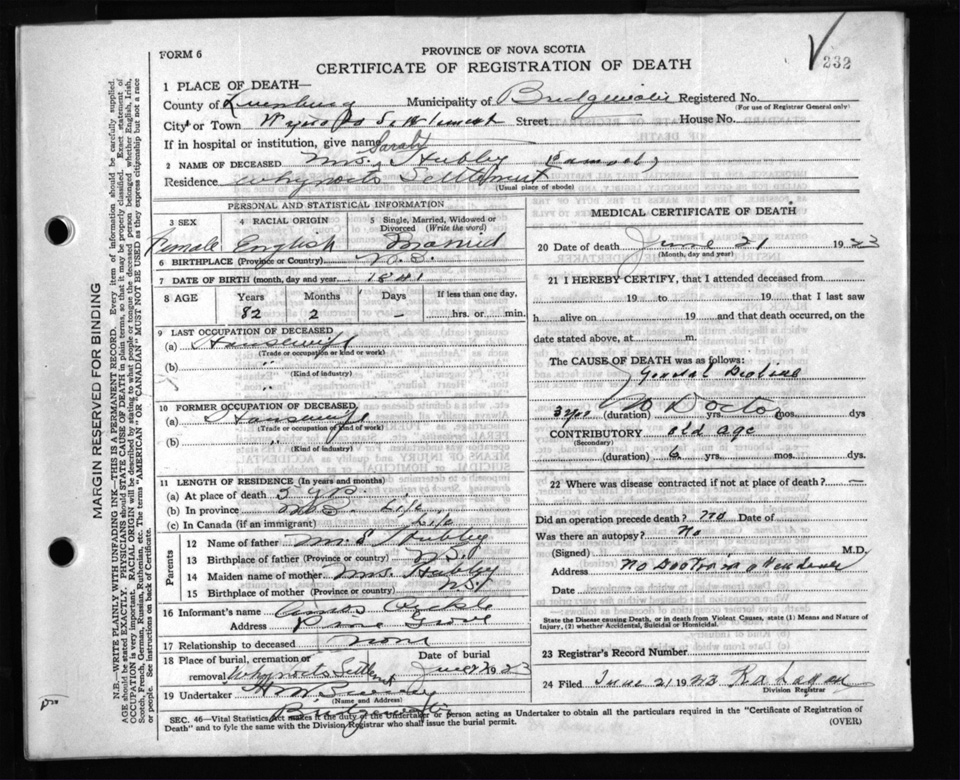 232
FORM 6
PROVINCE OF NOVA SCOTIA
CERTIFICATE OF REGISTRATION OF DEATH
1 PLACE OF DEATH—
County of Lunenburg Municipality of Bridgewater Registered No.
(For use of Registrar General only)
City or Town Settlement Street House No.
If in hospital or institution, give name
Sarah
2 NAME OF DECEASED Mrs. Hubley
Residence Whynots Settlement
(Usual place of abode)
PERSONAL AND STATISTICAL INFORMATION
3 SEX 4 RACIAL ORIGIN 5 Single, Married, Widowed or Divorced (Write the word)
Female English Married
6 BIRTHPLACE (Province or Country) N.S.
7 DATE OF BIRTH (month, day and year) 1841
8 AGE Years Months Days If less than one day,
82 2 – hrs. or min.
9 LAST OCCUPATION OF DECEASED
(a) Housewife
(Trade or occupation or kind of work)
(b) "
(Kind of industry)
"
10 FORMER OCCUPATION OF DECEASED
(a) Housewife
(Trade or occupation or kind of work)
(b) "
(Kind of industry)
11 LENGTH OF RESIDENCE (In years and months)
(a) At place of death
(b) In province N.S. Life
(c) In Canada (if an immigrant) Life
Parents
12 Name of father Hubley
13 Birthplace of father (Province or country) N.S.
14 Maiden name of mother Hubley
15 Birthplace of mother (Province or country) N.S.
16 Informant's name Amos
Address Grove
17 Relationship to deceased none
18 Place of burial, cremation or removal Whynots Settlement Date of burial June 23
19 Undertaker
(Name and Address)
Bridgewater
MEDICAL CERTIFICATE OF DEATH
20 Date of death June 21 1923
(Month, day and year)
21 I HEREBY CERTIFY, that I attended deceased from
19 to 19 that I last saw
h alive on 19 and that death occurred, on
date stated above, at m.
The CAUSE OF DEATH was as follows:
General Decline
No Doctor
(duration) yrs. mos. dys
CONTRIBUTORY old age
(Secondary)
(duration) 6 yrs. mos. dys
22 Where was disease contracted if not at place of death? —
Did an operation precede death? no Date of
Was there an autopsy? No
(Signed) M.D.
Address No Doctor in attendance
Date
State the Disease causing Death, or in death from Violent Causes, state (1) Means and Nature of Injury, (2) whether Accidental, Suicidal or Homicidal.
23 Registrar's Record Number
24 Filed June 21 1923
Division Registrar
SEC. 46—Vital Statistics Act makes it the duty of the Undertaker or person acting as Undertaker to obtain all the particulars required in the "Certificate of Registration of
Death" and to fyle the same with the Division Registrar who shall issue the burial permit. (OVER)
MARGIN RESERVED FOR BINDING
N.B.—WRITE PLAINLY WITH UNFADING INK—THIS IS A PERMANENT RECORD. Every item of information should be carefully supplied.
AGE should be stated EXACTLY. PHYSICIANS should STATE CAUSE OF DEATH in plain terms, so that it may be properly classified. Exact statement of
OCCUPATION is very important. RACIAL ORIGIN will be described by stating to what people or tongue the deceased person belonged, whether English, Irish,
Scotch, French, German, Russian, Ruthenian, etc. The terms "AMERICAN" or "CANADIAN" MUST NOT BE USED as they express citizenship but not a race
or people. See instructions on back of Certificate.